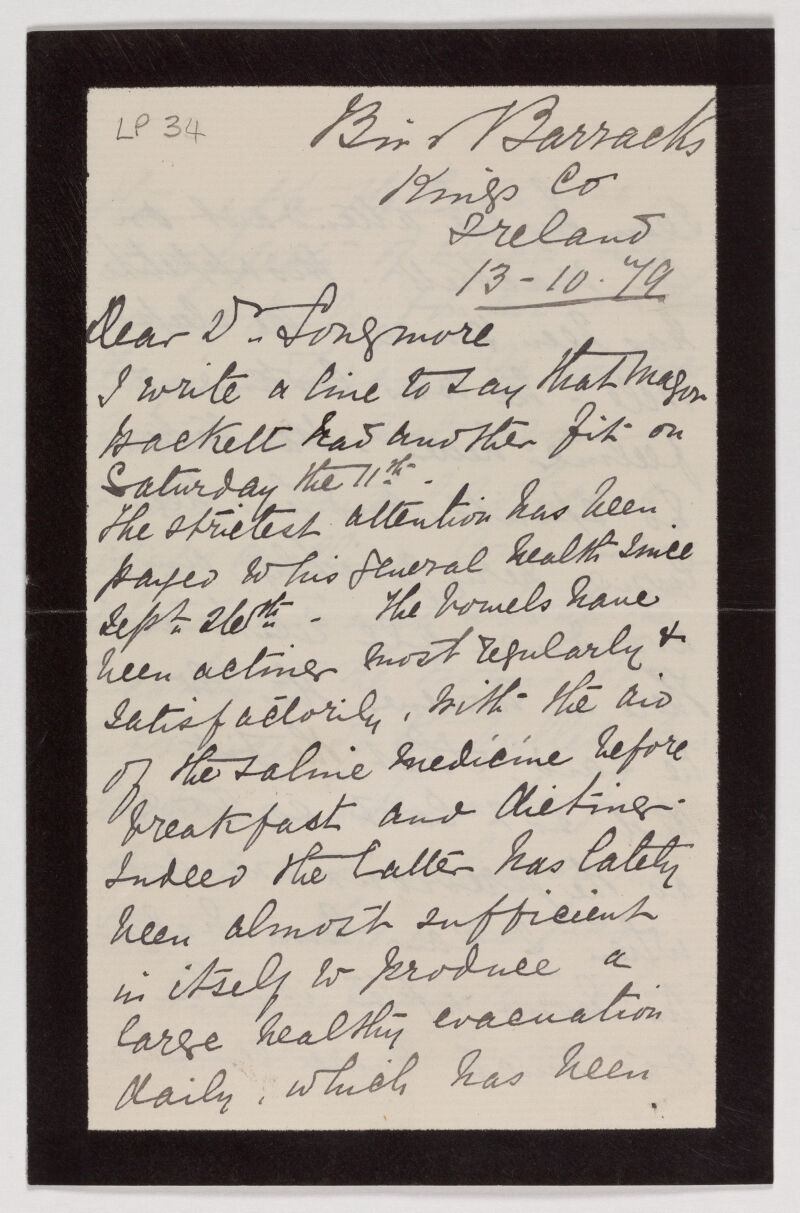 LP 34
Birr Barracks
Kings Co
Ireland
13-10-79
Dear Dr. Longmore
I write a line to say that Major
Hackett had another fit on
Saturday the 11th.
The strictest attention has been
payed to his general health since
Sept. 26th - The bowels have
been acting most regularly &
satisfactorily, with the aid
of the saline medicine before
breakfast and dieting.
Indeed the latter has lately
been almost sufficient
in itself to produce a
large healthy evacuation
daily, which has been